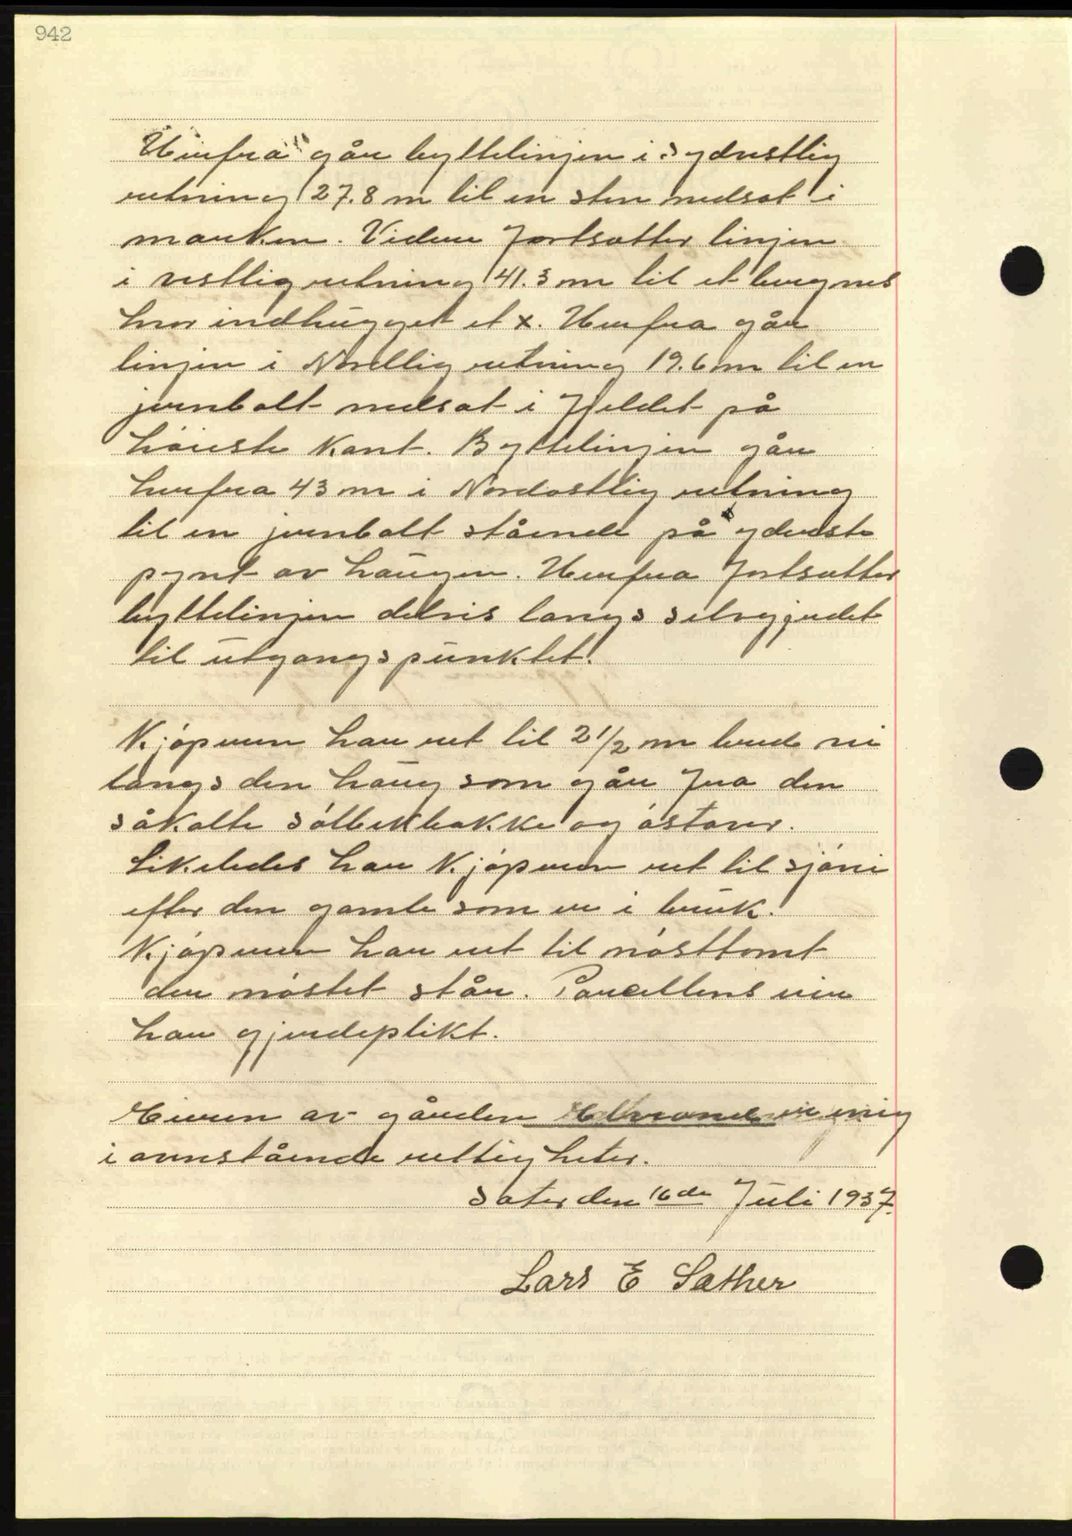 942
Herfra går byttelinjen i sydvestlig
retning 27.8 m til en sten nedsat i
marken. Videre fortsætter linjen
i vestlig retning 41.3 m til et bergnes
hvor indhugget et x. Herfra går
linjen i Nordlig retning 19.6 m til en
jernbolt nedsat i Fjeldet på
höieste Kant. Byttelinjen går
herfra 43 m i Nordostlig retning
til en jernbolt stående på yderste
pynt av haugen. Herfra fortsætter
byttelinjen delvis langs selvgjerdet
til utgangspunktet.
Kjöperen har ret til 2 1/2 m bred vei
langs den haug som går fra den
såkalte Sölbekbakke og östover.
Likeledes har Kjöperen ret til sjövei
efter den gamle som er i bruk.
Kjöperen har ret til nösttomt
der nöstet står. Parcellens eier
har gjerdeplikt.
Eieren av gården er enig
i ovenstående rettigheter.
Sæter den 16de Juli 1937.
Lars E Sæther